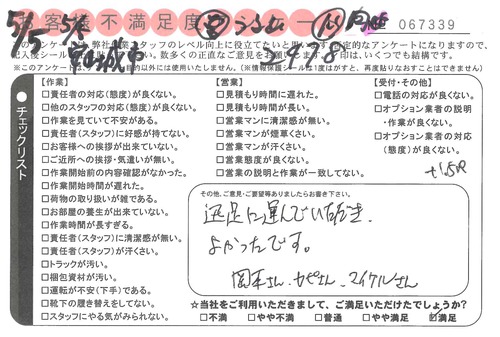 お客様不満足度
067339
向上
5/5
弊社
スタッフのレベル向上に役立てたいと
定的なアンケートになりますので、
記入後シール
数多くの正直なご意見をお願い
印は、いくつでも結構です。
※このアンケートは、サ
目的以外には使用いたしません。(※情報保護シールは1度はがすと、再度貼りなおすことはできません)
チェックリスト
【作業】
□責任者の対応(態度)が良くない。
□他のスタッフの対応(態度)が良くない。
□作業を見ていて不安がある。
□責任者(スタッフ)に好感が持てない。
□お客様への挨拶が出来ていない。
□ご近所への挨拶・気遣いが無い。
□作業開始前の内容確認がなかった。
□作業開始時間が遅れた。
□荷物の取り扱いが雑である。
□お部屋の養生が出来ていない。
□作業時間が長すぎる。
□責任者(スタッフ)に清潔感が無い。
□責任者(スタッフ)が汗くさい。
□トラックが汚い。
□梱包資材が汚い。
□運転が不安(下手)である。
□靴下の履き替えをしてない。
□スタッフにやる気がみられない。
【営業】
□見積もり時間に遅れた。
□見積もり時間が長い。
□営業マンに清潔感が無い。
□営業マンが煙草くさい。
□営業マンが汗くさい。
□営業態度が良くない。
□営業の説明と作業が一致してない。
【受付・その他】
□電話の対応が良くない。
□オプション業者の説明
・作業が良くない。
□オプション業者の対応
(態度)が良くない。
その他、ご意見・ご要望等ありましたらお書き下さい。
迅速に運んでいただき、
よかったです。
岡本さん、カピさん、マイケルさん
☆当社をご利用いただきまして、ご満足いただけたでしょうか?
□不満 □やや不満 □普通 □やや満足 ☑満足